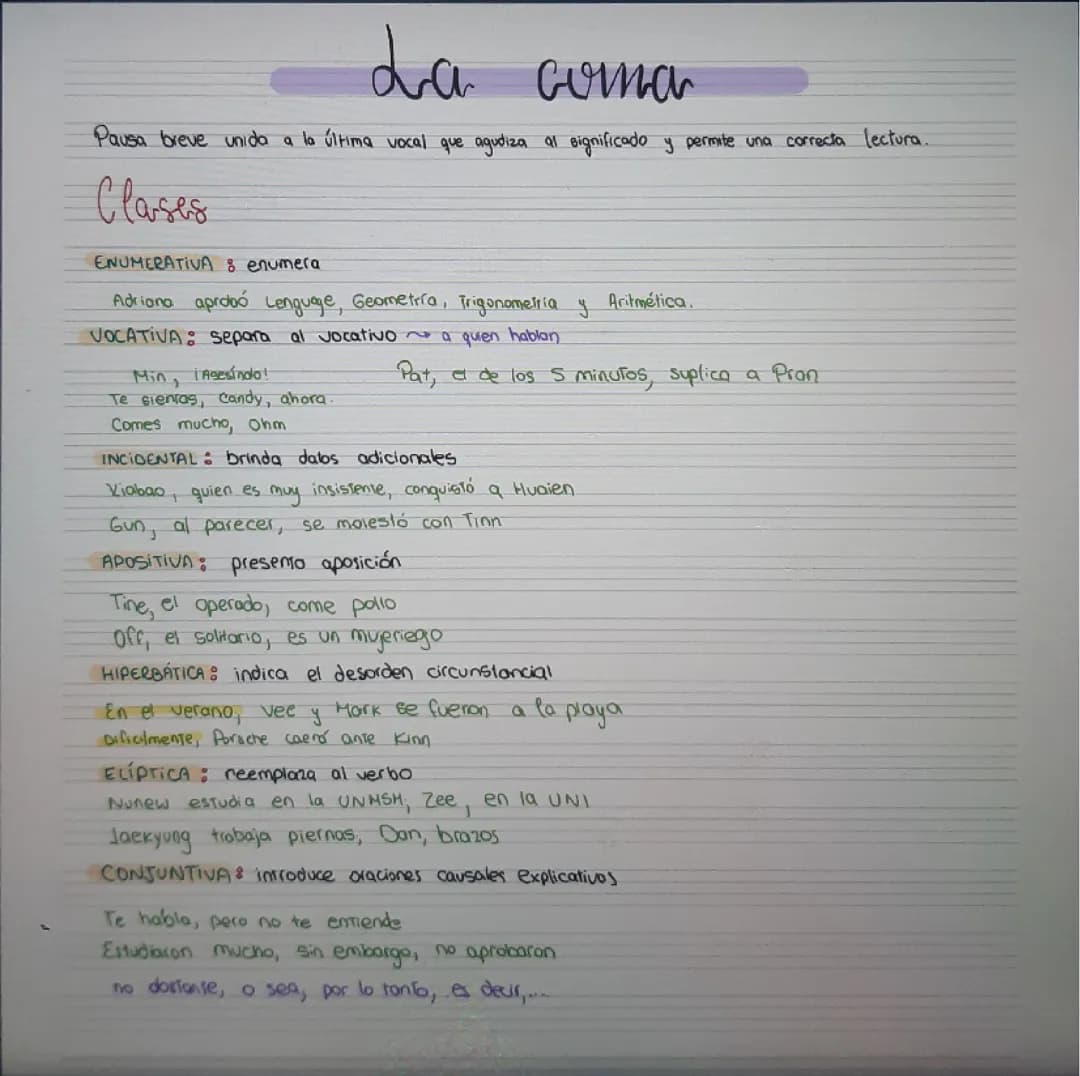 La coma
Pausa breve unida a la última vocal que agudiza al significado y permite una correcta lectura.
Clases
ENUMERATIVA: enumera
Adriana aprobó Lenguage, Geometría, Trigonometría y Aritmética.
VOCATIVA: separa al vocativo ~> a quien hablan
Min, ¡Asesínalo! Pat, el de los 5 minutos, suplica a Pran
Te sientas, Candy, ahora.
Comes mucho, Ohm
INCIDENTAL: brinda datos adicionales
Xiabao, quien es muy insistente, conquistó a Huaien
Gun, al parecer, se molestó con Tinn
APOSITIVA: presenta aposición
Tine, el operado, come pollo
Off, el solitario, es un mujeriego
HIPERBÁTICA: indica el desorden circunstancial
En el verano, Vee y Mark se fueron a la playa
Dificilmente, Porsche caerá ante Kinn
ELÍPTICA: reemplaza al verbo
Nunew estudia en la UNMSM, Zee, en la UNI
Jaekyung trabaja piernas, Dan, brazos
CONJUNTIVA: introduce oraciones causales explicativos
Te habla, pero no te entiende
Estudiaron mucho, sin embargo, no aprobaron
no obstante, o sea, por lo tanto, es decir,...